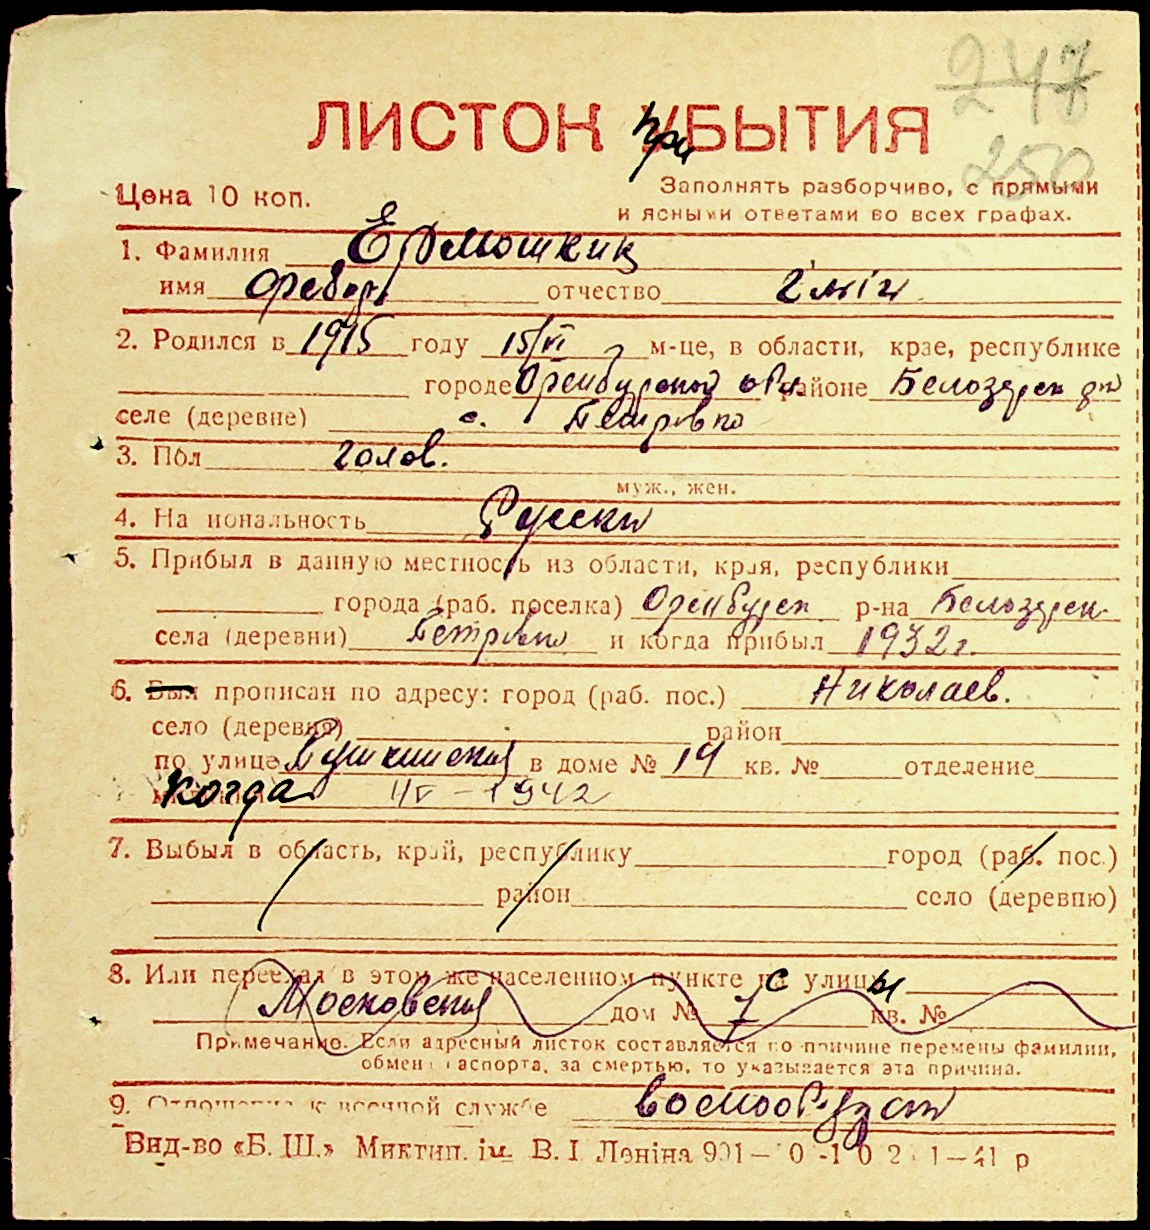 247
250
ЛИСТОК при БЫТИЯ
Цена 10 коп.
Заполнять разборчиво, с прямыми
и ясными ответами во всех графах.
1. Фамилия Ермошкин
имя отчество
2. Родился в 1915 году 15/VI м-це, в области, крае, республике
городе Оренбурской обл. районе Белозерск
селе (деревне) с. Петровко
3. Пол голов.
муж., жен.
4. Национальность Русски
5. Прибыл в данную местность из области, края, республики
города (раб. поселка) Оренбурск р-на Белозерск
села (деревни) Петровко и когда прибыл 1932 г.
6. Был прописан по адресу: город (раб. пос.) Николаев.
село (деревня) район
по улице Пушкинская в доме № 19 кв. № отделение
когда 1942
7. Выбыл в область, край, республику город (раб. пос.)
район село (деревню)
8. Или переехал в этом же населенном пункте с улицы
Московская дом № 7 кв. №
Примечание. Если адресный листок составляется по причине перемены фамилии,
обмена паспорта, за смертью, то указывается эта причина.
9. Отношение к военной службе
Вид-во «Б. Ш.» Миктип. ім. В. І Леніна